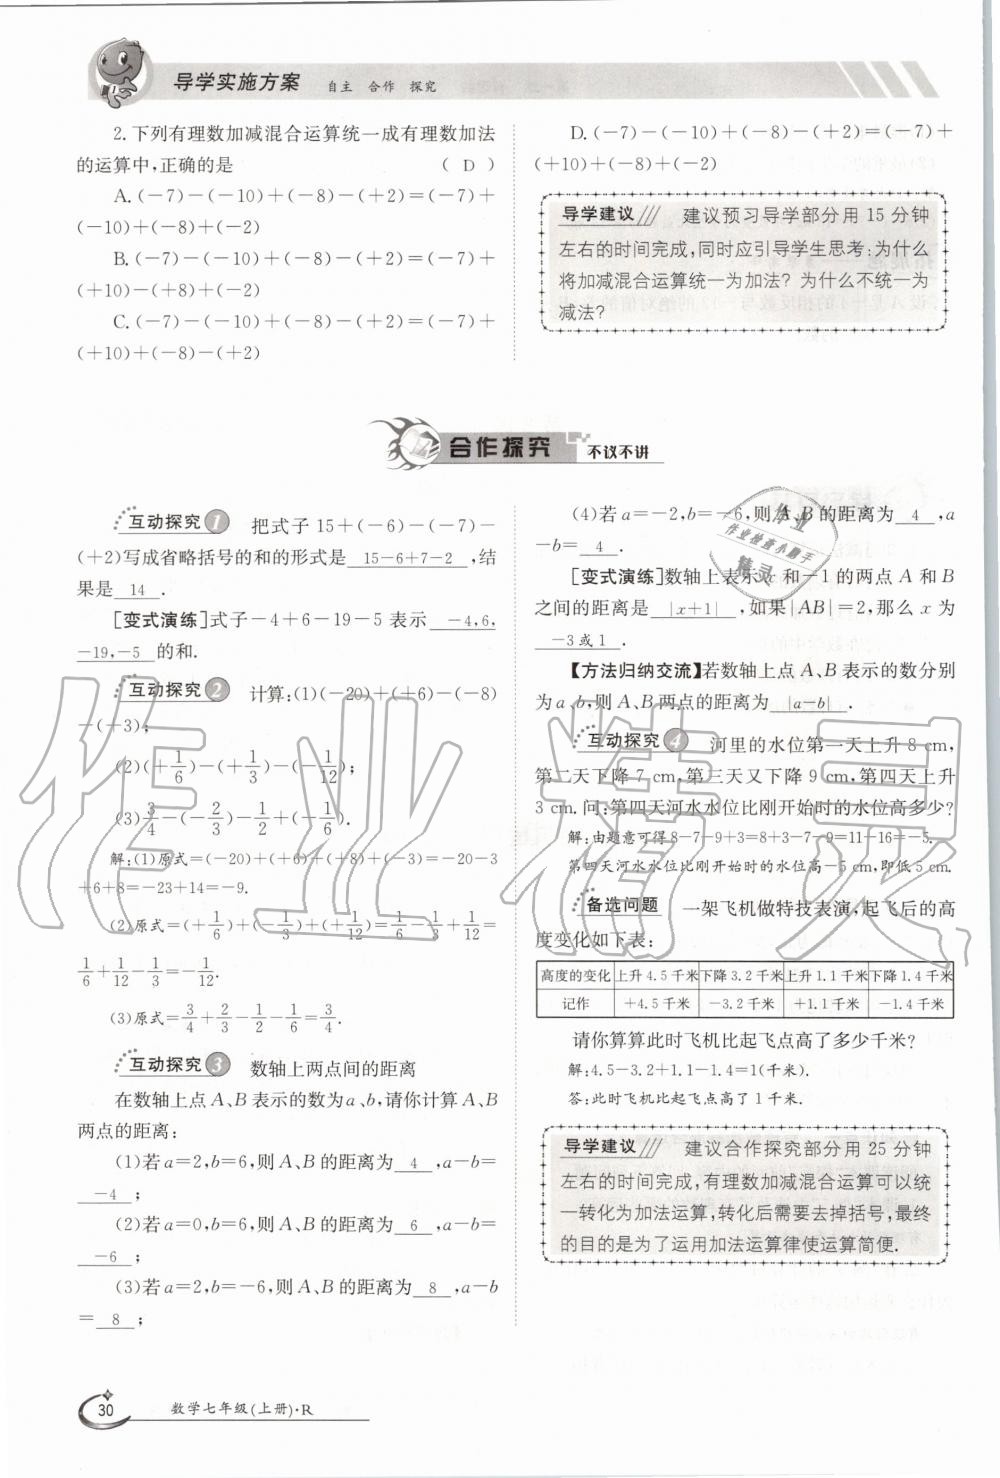 导学实施方案 自主 合作 探究
2.下列有理数加减混合运算统一成有理数加法
的运算中,正确的是 ( D )
A.(-7)-(-10)+(-8)-(+2)=(-7)+
(-10)+(-8)+(-2)
B.(-7)-(-10)+(-8)-(+2)=(-7)+
(+10)-(+8)+(-2)
C.(-7)-(-10)+(-8)-(+2)=(-7)+
(+10)+(-8)-(+2)
D.(-7)-(-10)+(-8)-(+2)=(-7)+
(+10)+(-8)+(-2)
导学建议 建议预习导学部分用 15 分钟
左右的时间完成,同时应引导学生思考:为什么
将加减混合运算统一为加法? 为什么不统一为
减法?
合作探究 不议不讲
互动探究 1 把式子 15+(-6)-(-7)-
(+2)写成省略括号的和的形式是 15-6+7-2 ,结
果是 14 .
[变式演练]式子-4+6-19-5 表示 -4,6,
-19,-5 的和.
互动探究 2 计算:(1)(-20)+(+6)-(-8)
-(+3);
(2)(+1/6)-(+1/3)-(-1/12);
(3)3/4-(-2/3)-1/2+(-1/6).
解:(1)原式=(-20)+(+6)+(+8)+(-3)=-20-3
+6+8=-23+14=-9.
(2)原式=(+1/6)+(-1/3)+(+1/12)=1/6-1/3+1/12=
1/6+1/12-1/3=-1/12.
(3)原式=3/4+2/3-1/2-1/6=3/4.
互动探究 3 数轴上两点间的距离
在数轴上点 A、B 表示的数为 a、b,请你计算 A、B
两点的距离:
(1)若 a=2,b=6,则 A、B 的距离为 4 ,a-b=
-4 ;
(2)若 a=0,b=6,则 A、B 的距离为 6 ,a-b=
-6 ;
(3)若 a=2,b=-6,则 A、B 的距离为 8 ,a-b
= 8 ;
(4)若 a=-2,b=-6,则 A、B 的距离为 4 ,a
-b= 4 .
[变式演练]数轴上表示 x 和-1 的两点 A 和 B
之间的距离是 |x+1| ,如果|AB|=2,那么 x 为
-3 或 1 .
【方法归纳交流】若数轴上点 A、B 表示的数分别
为 a、b,则 A、B 两点的距离为 |a-b| .
互动探究 4 河里的水位第一天上升 8 cm,
第二天下降 7 cm,第三天又下降 9 cm,第四天上升
3 cm.问:第四天河水水位比刚开始时的水位高多少?
解:由题意可得 8-7-9+3=8+3-7-9=11-16=-5.
第四天河水水位比刚开始时的水位高-5 cm,即低 5 cm.
备选问题 一架飞机做特技表演,起飞后的高
度变化如下表:
高度的变化 上升 4.5 千米 下降 3.2 千米 上升 1.1 千米 下降 1.4 千米
记作 +4.5 千米 -3.2 千米 +1.1 千米 -1.4 千米
请你算算此时飞机比起飞点高了多少千米?
解:4.5-3.2+1.1-1.4=1(千米).
答:此时飞机比起飞点高了 1 千米.
导学建议 建议合作探究部分用 25 分钟
左右的时间完成,有理数加减混合运算可以统
一转化为加法运算,转化后需要去掉括号,最终
的目的是为了运用加法运算律使运算简便.
30 数学七年级(上册)·R
作业精灵
作业
作业检查小助手
精灵